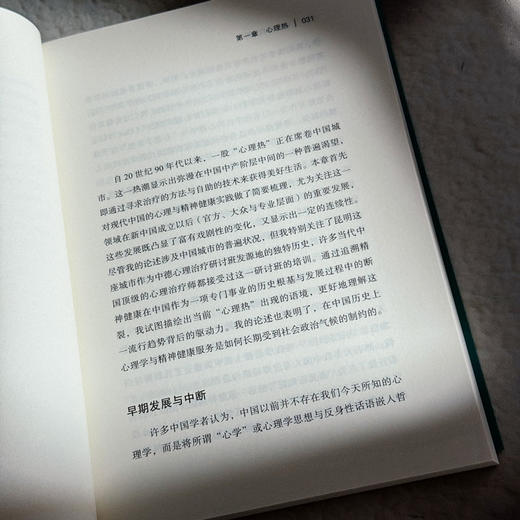 第一章 心理热 | 031
自 20 世纪 90 年代以来，一股“心理热”正在席卷中国城
市。这一热潮显示出弥漫在中国中产阶层中间的一种普遍渴望，
即通过寻求治疗的方法与自助的技术来获得美好生活。本章首先
对现代中国的心理与精神健康实践做了简要梳理，尤为关注这一
领域在新中国成立以后（官方、大众与专业层面）的重要发展，
这些发展既凸显了富有戏剧性的变化，又显示出一定的连续性。
尽管我的论述涉及中国城市的普遍状况，但我特别关注了昆明这
座城市作为中德心理治疗研讨班发源地的独特历史，许多当代中
国顶级的心理治疗师都接受过这一研讨班的培训。通过追溯精
神健康在中国作为一项专门事业的历史根基与发展过程中的断
裂，我试图描绘出当前“心理热”出现的语境，更好地理解这
一流行趋势背后的驱动力。我的论述也表明了，在中国历史上
心理学与精神健康服务是如何长期受到社会政治气候的制约的。
早期发展与中断
许多中国学者认为，中国以前并不存在我们今天所知的心
理学，而是将所谓“心学”或心理学思想与反身性话语嵌入哲